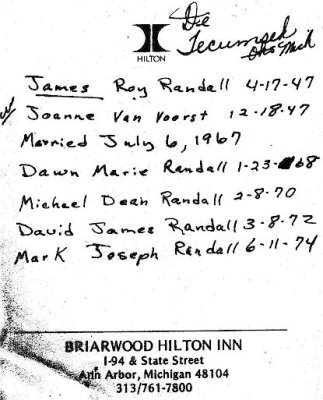 Tecumseh
HILTON
James Roy Randall 4-17-47
Joanne Van Voorst 12-18-47
Married July 6, 1967
Dawn Marie Randall 1-23-68
Michael Dean Randall 2-8-70
David James Randall 3-8-72
Mark Joseph Randall 6-11-74
BRIARWOOD HILTON INN
I-94 & State Street
Ann Arbor, Michigan 48104
313/761-7800